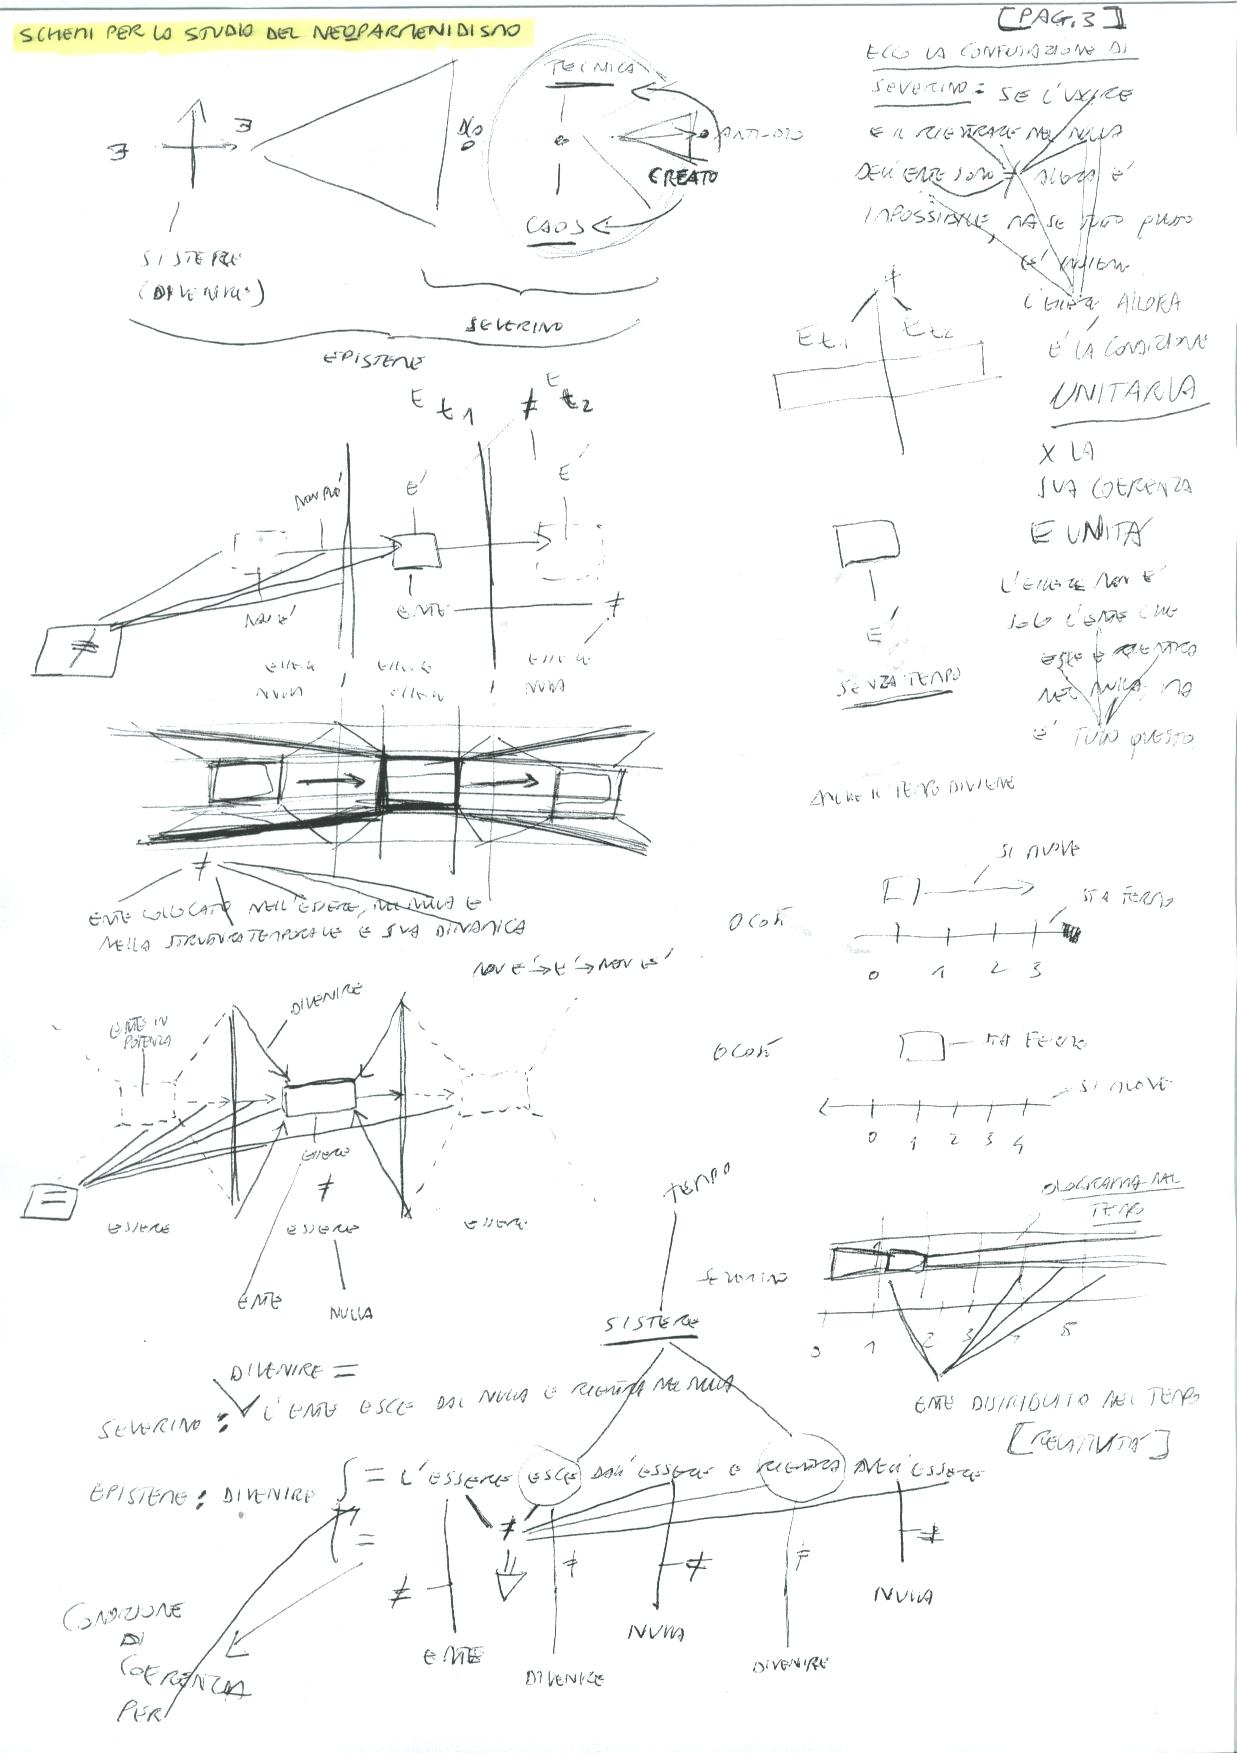 SCHEMI PER LO STUDIO DEL NEOPARMENIDISMO
[PAG.3]
ECCO LA CONFUTAZIONE DI
SEVERINO: SE L'USCIRE
E IL RIENTRARE NEL NULLA
DELL'ENTE SONO ≠ ALLORA E'
IMPOSSIBILE, MA SE TUTTO QUESTO
E' INSIEME
L'ESSERE ALLORA
E' LA CONDIZIONE
UNITARIA
X LA
SUA COERENZA
E UNITÀ
L'ESSERE NON E'
SOLO L'ENTE CHE
ESCE E RIENTRA
NEL NULLA, MA
E' TUTTO QUESTO
TECNICA
DIO
ANTI-DIO
CREATO
CAOS
SISTERE
(DIVENIRE)
SEVERINO
EPISTEME
≠
E t1
E t2
E t1 ≠ E t2
NON PUÒ
E'
E'
NON E'
ENTE
≠
≠
ESSERE
ESSERE
ESSERE
NULLA
ESSERE
NULLA
E'
SENZA TEMPO
≠
ENTE COLLOCATO NELL'ESSERE, NEL NULLA E
NELLA STRUTTURA TEMPORALE E SUA DINAMICA
ANCHE IL TEMPO DIVIENE
SI MUOVE
O COSÌ
STA FERMO
0 1 2 3
NON E' → E' → NON E'
DIVENIRE
ENTE IN
POTENZA
O COSÌ
STA FERMO
SI MUOVE
0 1 2 3 4
=
ESSERE
≠
ESSERE
ESSERE
ESSERE
ENTE
NULLA
TEMPO
SISTERE
OLOGRAMMA NEL
TEMPO
SEVERINO
0 1 2 3 4 5
ENTE DISTRIBUITO NEL TEMPO
[RELATIVITÀ]
DIVENIRE =
SEVERINO: L'ENTE ESCE DAL NULLA E RIENTRA NEL NULLA
EPISTEME: DIVENIRE = L'ESSERE ESCE DALL'ESSERE E RIENTRA NELL'ESSERE
=
≠
≠
≠
≠
≠
≠
ENTE
DIVENIRE
NULLA
DIVENIRE
NULLA
CONDIZIONE
DI
COERENZA
PER